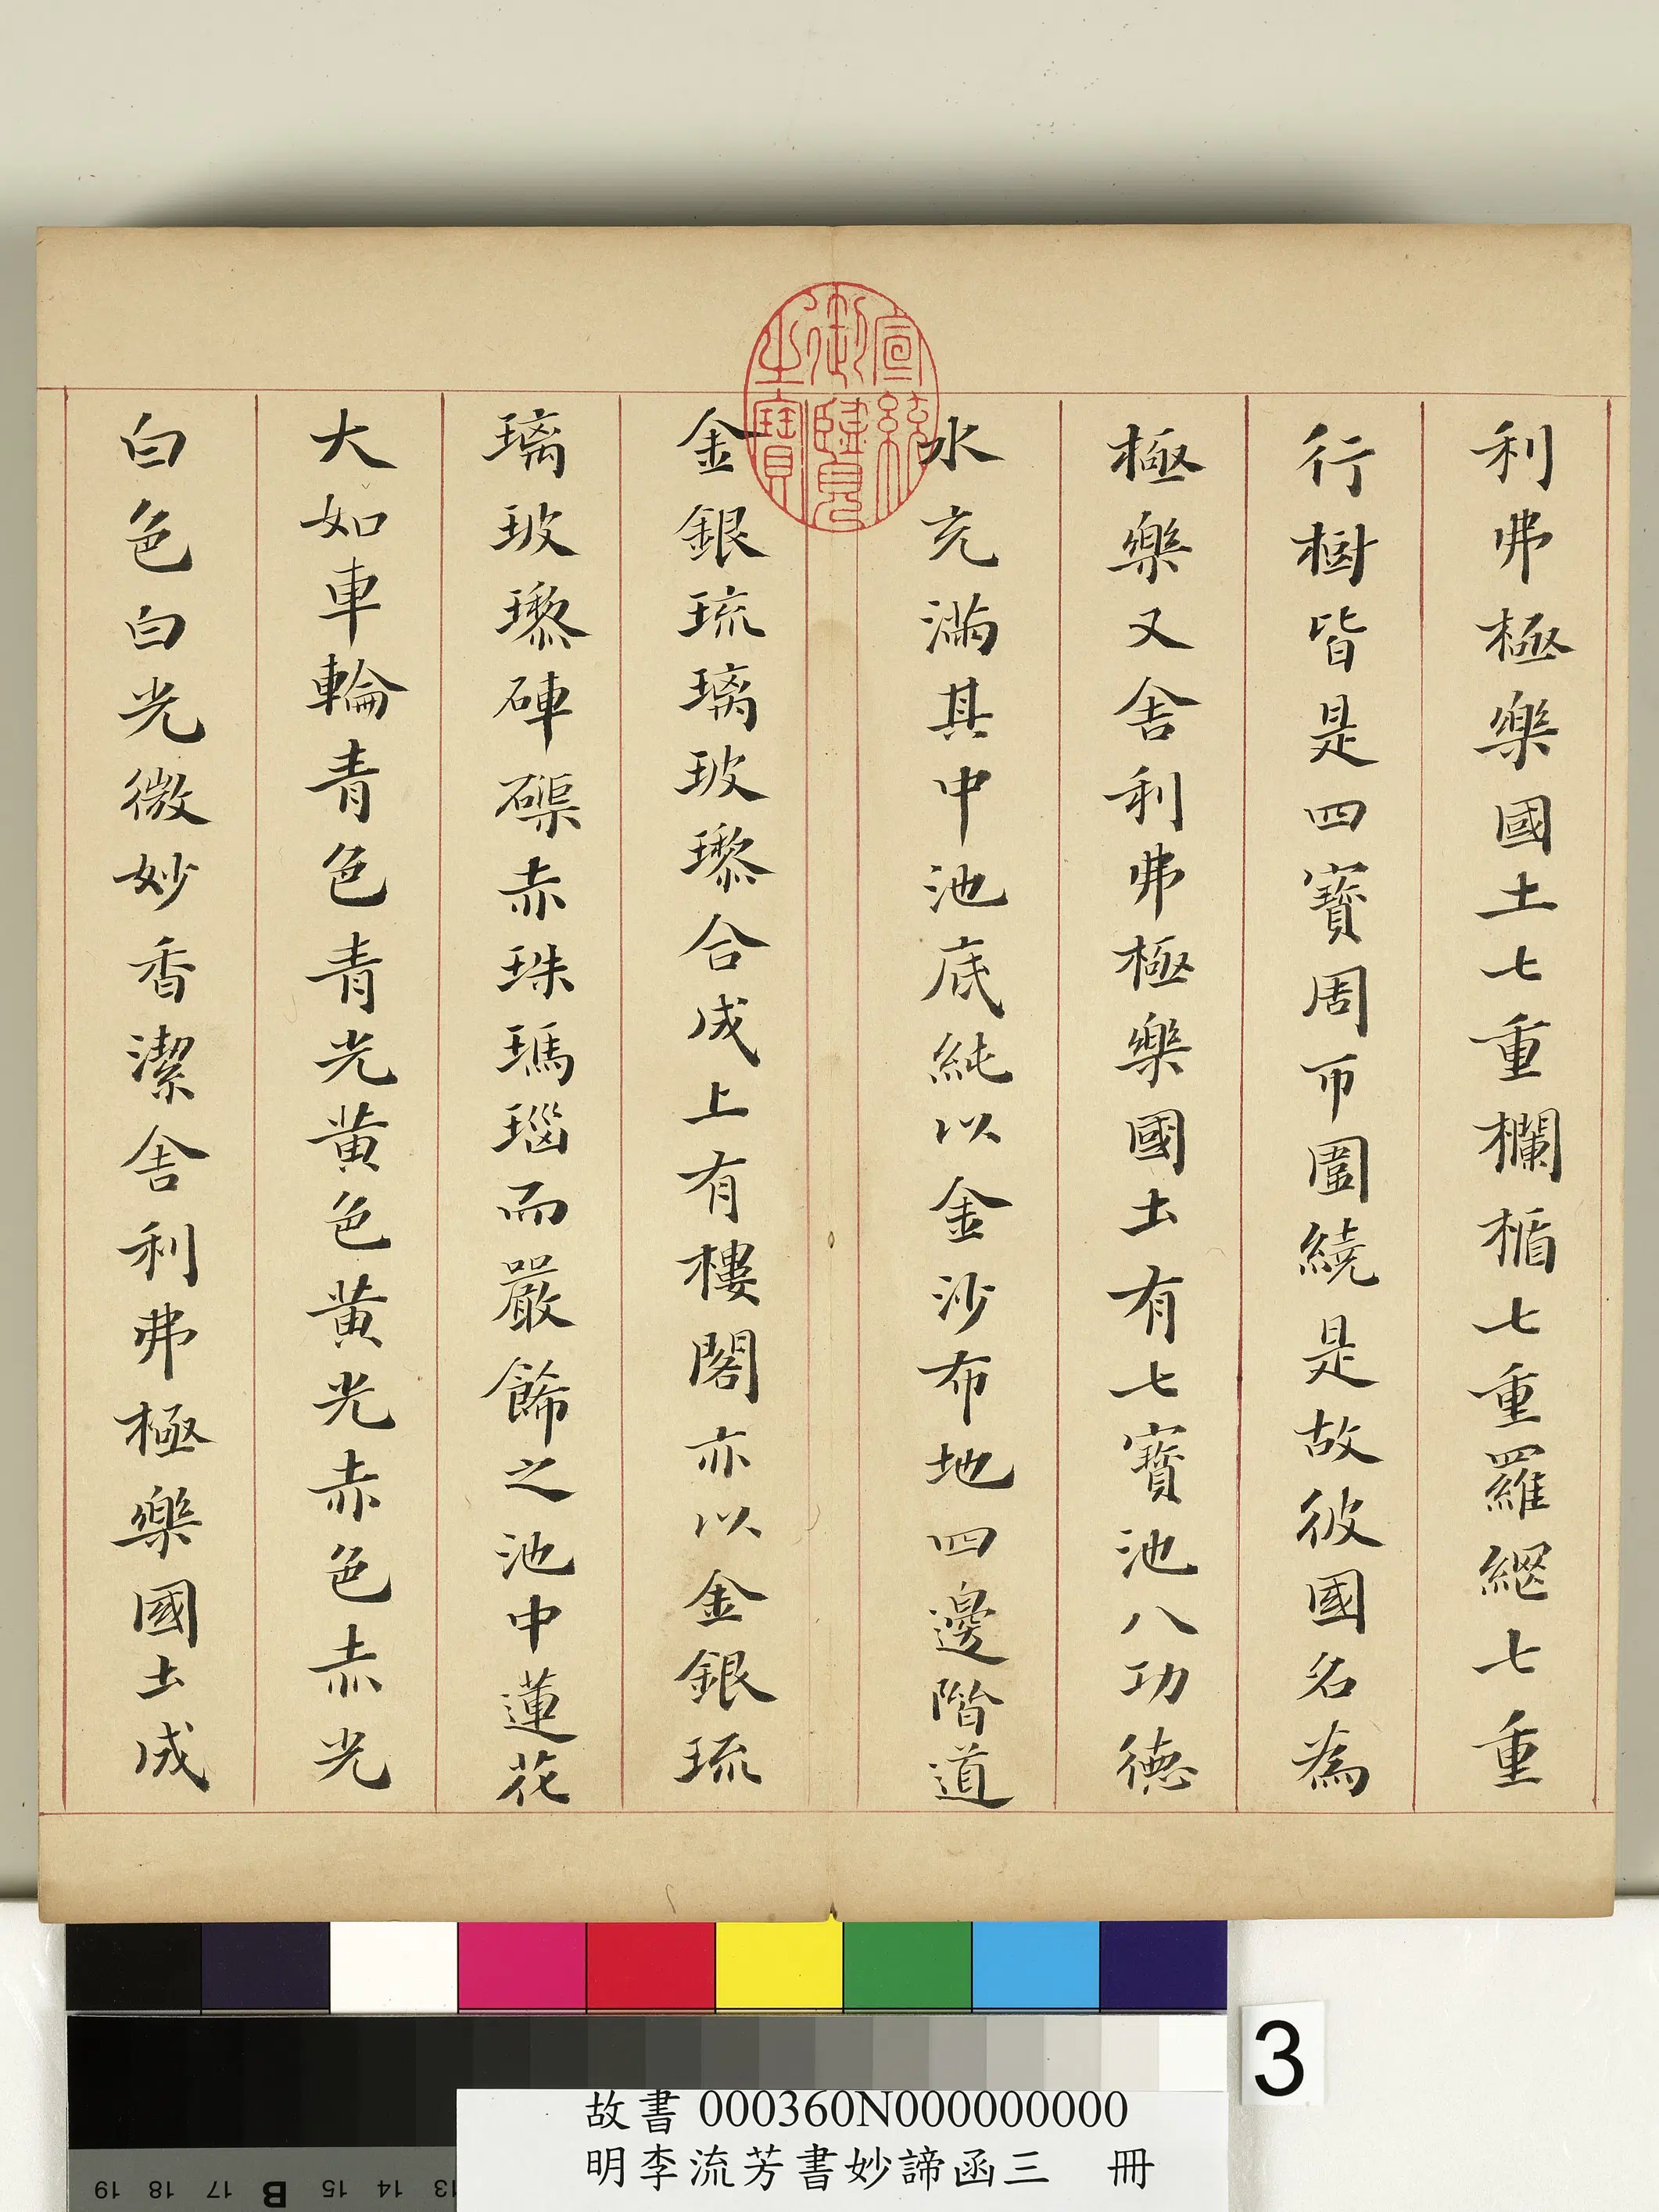 利弗極樂國土七重欄楯七重羅網七重
行樹皆是四寶周帀圍繞是故彼國名為
極樂又舍利弗極樂國土有七寶池八功德
水充滿其中池底純以金沙布地四邊階道
金銀琉璃玻瓈合成上有樓閣亦以金銀琉
璃玻瓈硨磲赤珠瑪瑙而嚴飾之池中蓮花
大如車輪青色青光黃色黃光赤色赤光
白色白光微妙香潔舍利弗極樂國土成
宣統
御覽
之寶
3
故書 000360N000000000
明李流芳書妙諦函三 冊
19 18 17 B 15 14 13